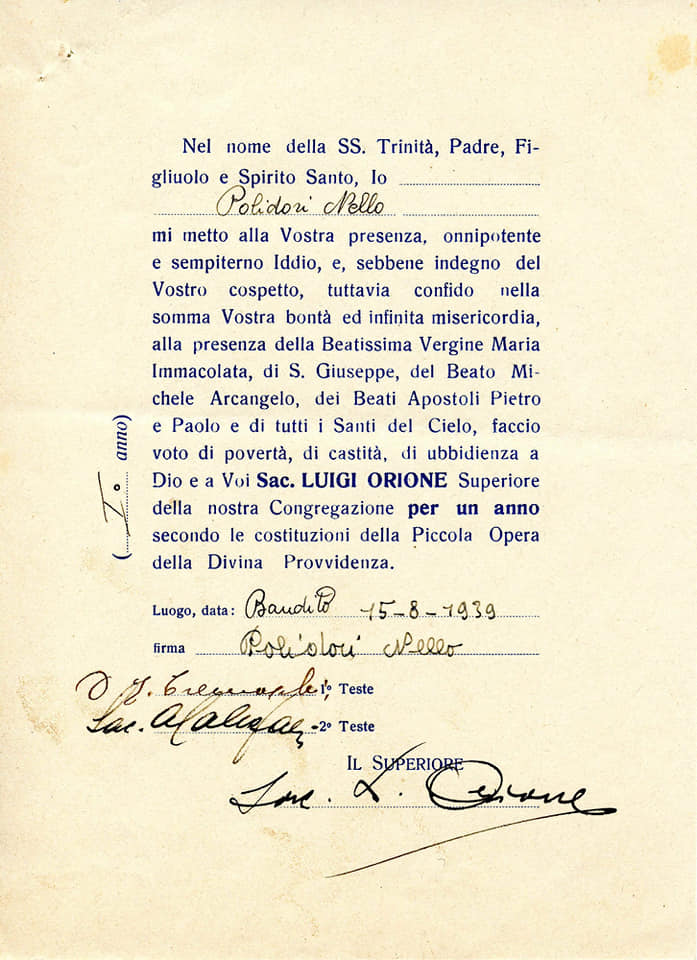 Nel nome della SS. Trinità, Padre, Fi-
gliuolo e Spirito Santo, Io
Polidori Nello
mi metto alla Vostra presenza, onnipotente
e sempiterno Iddio, e, sebbene indegno del
Vostro cospetto, tuttavia confido nella
somma Vostra bontà ed infinita misericordia,
alla presenza della Beatissima Vergine Maria
Immacolata, di S. Giuseppe, del Beato Mi-
chele Arcangelo, dei Beati Apostoli Pietro
e Paolo e di tutti i Santi del Cielo, faccio
voto di povertà, di castità, di ubbidienza a
Dio e a Voi Sac. LUIGI ORIONE Superiore
della nostra Congregazione per un anno
secondo le costituzioni della Piccola Opera
della Divina Provvidenza.
(I.° anno)
Luogo, data: Bandito 15-8-1939
firma Polidori Nello
1° Teste
Sac. 2° Teste
IL SUPERIORE
Sac. L. Orione